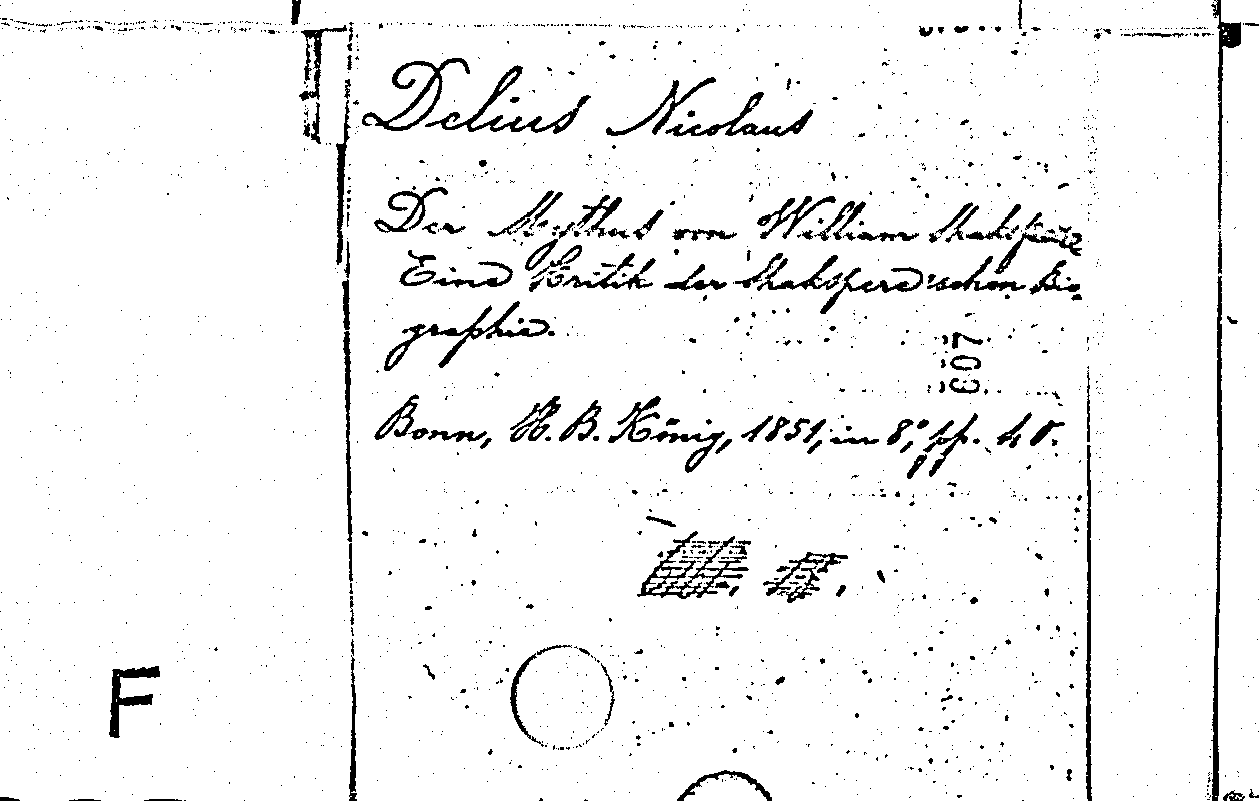 Delius Nicolaus
Der Mythus von William Shakspere
Eine Kritik der Shakspere'schen Bio-
graphie.
607
Bonn, H. B. König, 1851, in 8°, pp. 40.
F